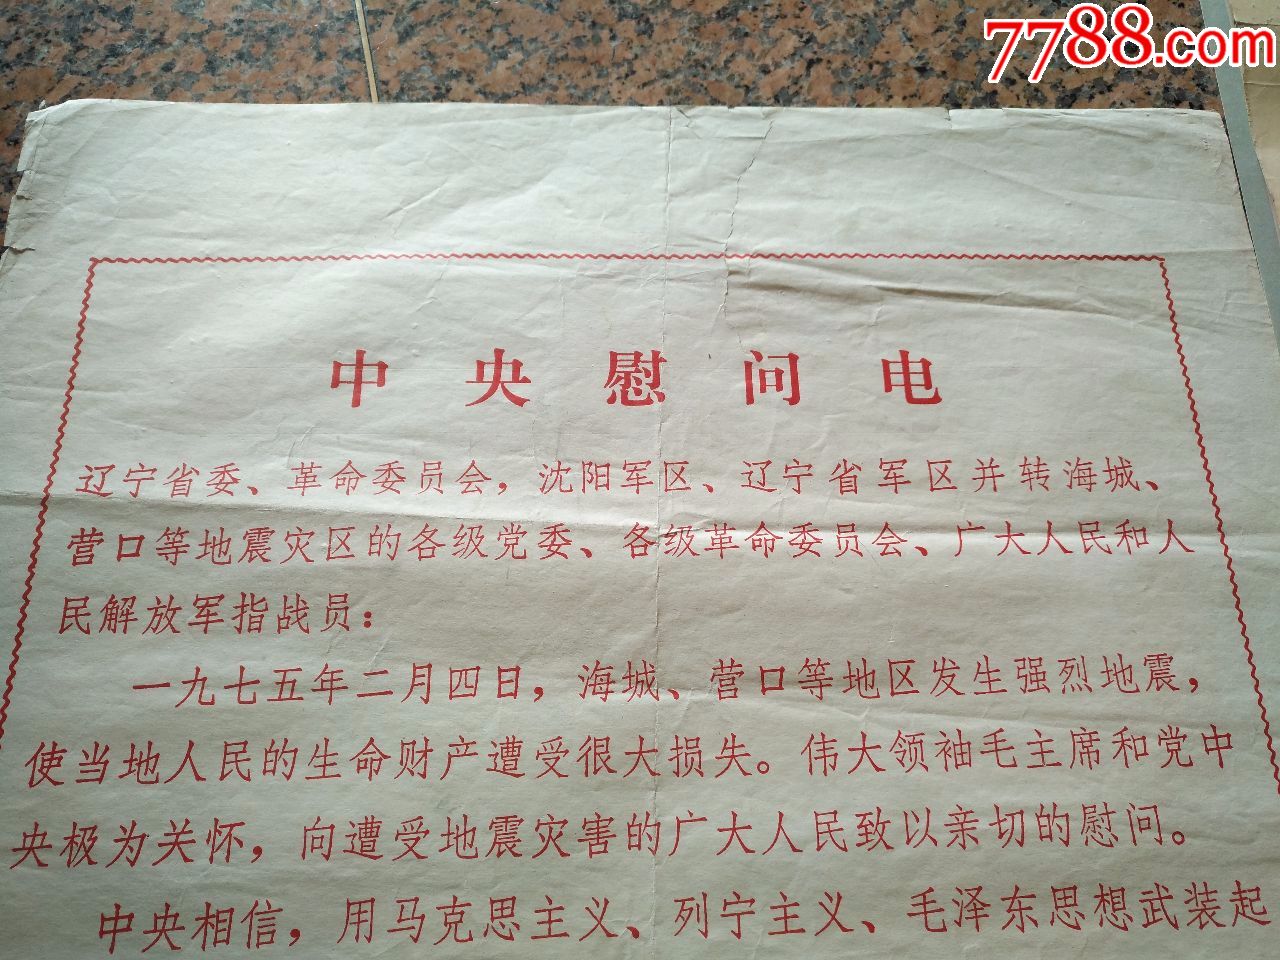 7788.com
中央慰问电
辽宁省委、革命委员会，沈阳军区、辽宁省军区并转海城、
营口等地震灾区的各级党委、各级革命委员会、广大人民和人
民解放军指战员：
一九七五年二月四日，海城、营口等地区发生强烈地震，
使当地人民的生命财产遭受很大损失。伟大领袖毛主席和党中
央极为关怀，向遭受地震灾害的广大人民致以亲切的慰问。
中央相信，用马克思主义、列宁主义、毛泽东思想武装起